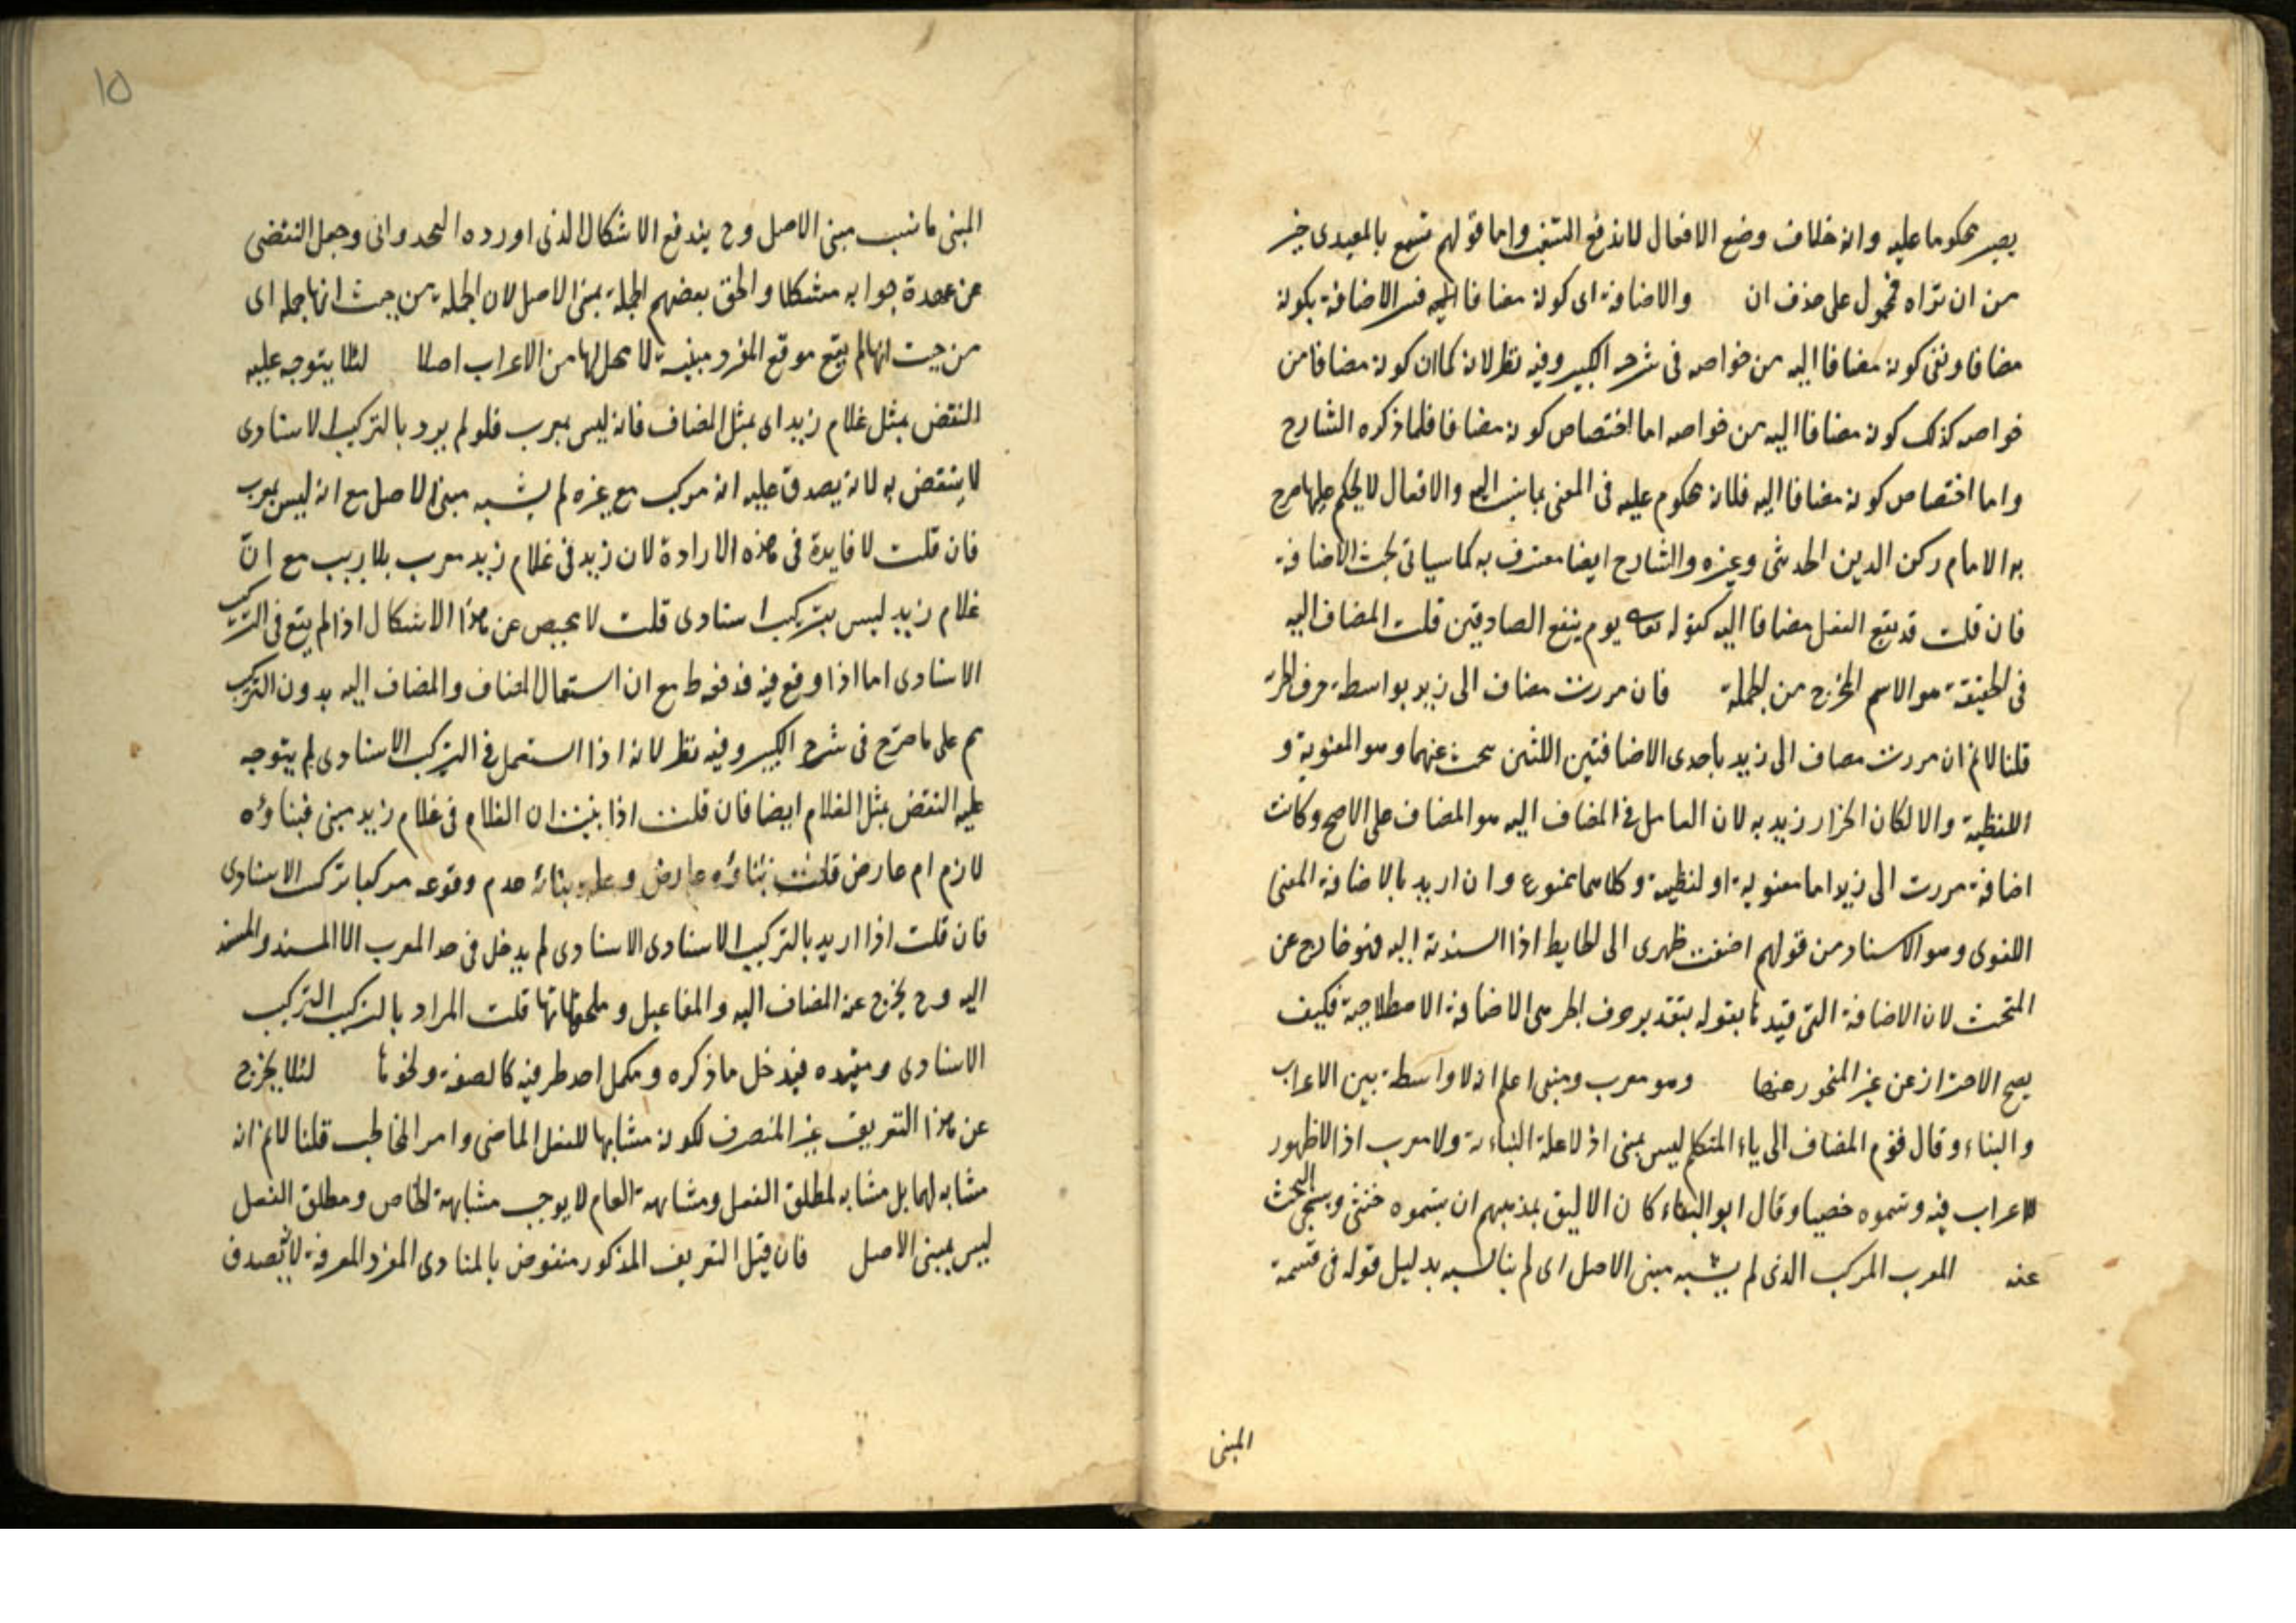 يصير محكوما عليه وانه خلاف وضع الافعال لاندفع النقض واما قولهم تسمع بالمعيدى خير
من ان تراه فمحمول على حذف ان والاضافة اى كونه مضافا اليه فسر الاضافة بكونه
مضافا ونفى كونه مضافا اليه من خواصه فى شرحه الكبير وفيه نظر لانه كما ان كونه مضافا من
خواصه كذلك كونه مضافا اليه من خواصه اما اختصاص كونه مضافا فلما ذكره الشارح
واما اختصاص كونه مضافا اليه فلانه محكوم عليه فى المعنى بما نسب اليه والافعال لا يحكم عليها صرح
به الامام ركن الدين الحديثى وغيره والشارح ايضا معترف به كما سياتى بحث الاضافة
فان قلت قد يقع الفعل مضافا اليه كقوله تعالى يوم ينفع الصادقين قلت المضاف اليه
فى الحقيقة هو الاسم المخرج من الجملة فان مررت مضاف الى زيد بواسطة حرف الجر
قلنا لا نم ان مررت مضاف الى زيد باحدى الاضافتين اللتين بحث عنهما وهو المعنوية و
اللفظية والا لكان الجار زيد به لان العامل فى المضاف اليه هو المضاف على الاصح وكانت
اضافة مررت الى زيد اما معنوية او لفظية وكلاهما ممنوع وان اريد بالاضافة المعنى
اللغوى وهو الاسناد من قولهم اضفت ظهرى الى الحايط اذا اسندته اليه فهو خارج عن
المبحث لان الاضافة التى قيدنا بقوله بتقدير حرف الجر هى الاضافة الاصطلاحية فكيف
يصح الاحتراز عن غير المنحو عنها وهو معرب ومبنى اعلم انه لا واسطة بين الاعراب
والبناء وقال قوم المضاف الى ياء المتكلم ليس بمبنى اذ لا علة لبنائه ولا معرب اذ لا ظهور
لاعراب فيه وسموه خصيا وقال ابو البقاء كان الاليق بمذهبهم ان يسموه خنثى وسيجئ البحث
عنه المعرب المركب الذى لم يشبه مبنى الاصل اى لم يناسبه بدليل قوله فى قسمة
المبنى
١٥
المبنى ما ناسب مبنى الاصل وح يندفع الاشكال الذى اورده الحدوانى وجعل التفصى
عن عهدة جوابه مشكلا والحق بعضهم الجملة بمبنى الاصل لان الجملة من حيث انها جملة اى
من حيث انها لم يقع موقع المفرد مبنية لا محل لها من الاعراب اصلا لئلا يتوجه عليه
النقض بمثل غلام زيد اى بمثل المضاف فانه ليس بمعرب فلو لم يرد بالتركيب الاسنادى
لا ينتقض به لانه يصدق عليه انه مركب مع غيره لم يشبه مبنى الاصل مع انه ليس بمعرب
فان قلت لا فايدة فى هذه الارادة لان زيد فى غلام زيد معرب بلا ريب مع انّ
غلام زيد ليس بتركيب اسنادى قلت لا محيص عن هذا الاشكال اذا لم يقع فى التركيب
الاسنادى اما اذا وقع فيه فدفوط مع ان استعمال المضاف والمضاف اليه بدون التركيب
م على ما صرّح فى شرح الكبير وفيه نظر لانه اذا استعمل فى التركيب الاسنادى لم يتوجه
عليه النقض بمثل الغلام ايضا فان قلت اذا بنيت ان الغلام فى غلام زيد مبنى فبناؤه
لازم ام عارض قلت بناؤه عارض وعلة بنائه عدم وقوعه مركبا تركيب الاسنادى
فان قلت اذا اريد بالتركيب الاسنادى الاسنادى لم يدخل فى حد المعرب الا المسند والمسند
اليه وح يخرج عنه المضاف اليه والمفاعيل وملحقاتها قلت المراد بالتركيب التركيب
الاسنادى وقيده فيدخل ما ذكره ومكمل احد طرفيه كالصفة ونحوها لئلا يخرج
عن هذا التعريف غير المنصرف لكونه مشابها للفعل الماضى وامر المخاطب قلنا لا نم انه
مشابه لهما بل مشابه لمطلق الفعل ومشابهة العام لا يوجب مشابهة الخاص ومطلق الفعل
ليس بمبنى الاصل فان قيل التعريف المذكور منقوض بالمنادى المفرد المعرفة لانه يصدق